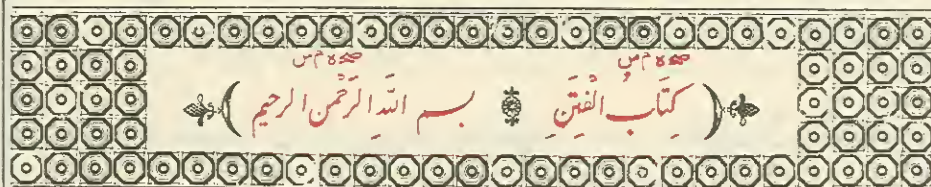 ( كِتَابُ الْفِتَنِ ۞ بسم اللهِ الرَّحْمنِ الرحيم )